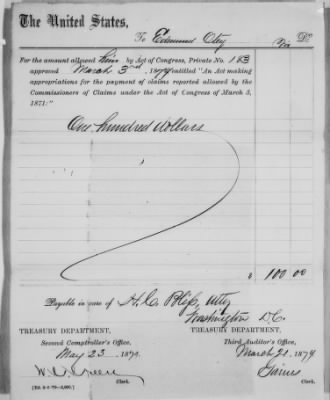 The United States,
To Edmund Otey Dr.
For the amount allowed him by Act of Congress, Private No. 183
approved March 3rd, 1879, entitled "An Act making
appropriations for the payment of claims reported allowed by the
Commissioners of Claims under the Act of Congress of March 3,
1871:"
One hundred dollars
$ 100 00
Payable in care of H. C. Bliss, Atty
Washington D.C.
TREASURY DEPARTMENT, TREASURY DEPARTMENT,
Second Comptroller's Office, Third Auditor's Office,
May 23 1879. March 21 1879
Green Gaines
Clerk. Clerk.